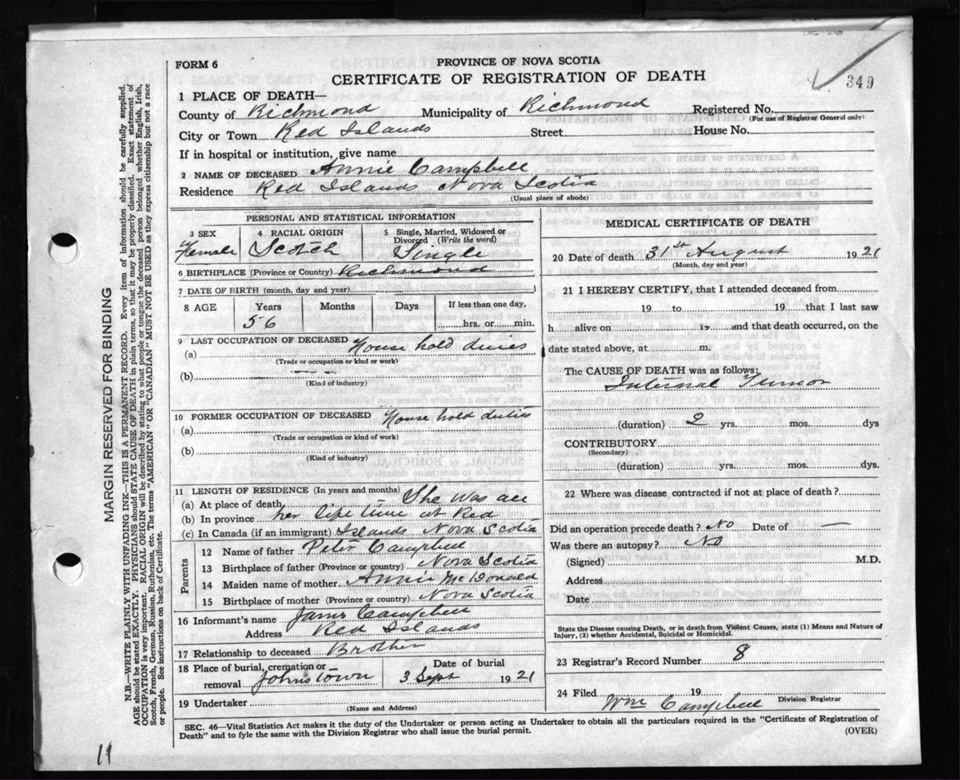 349
FORM 6
PROVINCE OF NOVA SCOTIA
CERTIFICATE OF REGISTRATION OF DEATH
1 PLACE OF DEATH—
County of Richmond Municipality of Richmond Registered No.
(For use of Registrar General only)
City or Town Red Islands Street House No.
If in hospital or institution, give name
2 NAME OF DECEASED Annie Campbell
Residence Red Islands Nova Scotia
(Usual place of abode)
PERSONAL AND STATISTICAL INFORMATION
3 SEX 4 RACIAL ORIGIN 5 Single, Married, Widowed or Divorced (Write the word)
Female Scotch Single
6 BIRTHPLACE (Province or Country) Richmond
7 DATE OF BIRTH (month, day and year)
8 AGE Years Months Days If less than one day,
56 hrs. or min.
9 LAST OCCUPATION OF DECEASED House hold duties
(a)
(Trade or occupation or kind or work)
(b)
(Kind of industry)
10 FORMER OCCUPATION OF DECEASED House hold duties
(a)
(Trade or occupation or kind of work)
(b)
(Kind of industry)
11 LENGTH OF RESIDENCE (In years and months)
(a) At place of death She was all
(b) In province her life time at Red
(c) In Canada (if an immigrant) Islands Nova Scotia
Parents
12 Name of father Peter Campbell
13 Birthplace of father (Province or country) Nova Scotia
14 Maiden name of mother Annie McDonald
15 Birthplace of mother (Province or country) Nova Scotia
16 Informant's name James Campbell
Address Red Islands
17 Relationship to deceased Brother
18 Place of burial, cremation or removal Johnstown Date of burial 3 Sept 1921
19 Undertaker
(Name and Address)
MEDICAL CERTIFICATE OF DEATH
20 Date of death 31st August 1921
(Month, day and year)
21 I HEREBY CERTIFY, that I attended deceased from
19 to 19 that I last saw
h alive on 19 and that death occurred, on the
date stated above, at m.
The CAUSE OF DEATH was as follows:
Internal Tumor
(duration) 2 yrs. mos. dys
CONTRIBUTORY
(Secondary)
(duration) yrs. mos. dys.
22 Where was disease contracted if not at place of death?
Did an operation precede death? No Date of —
Was there an autopsy? No
(Signed) M.D.
Address
Date
State the Disease causing Death, or in death from Violent Causes, state (1) Means and Nature of
Injury, (2) whether Accidental, Suicidal or Homicidal.
23 Registrar's Record Number 8
24 Filed 19
Wm Campbell Division Registrar
SEC. 46—Vital Statistics Act makes it the duty of the Undertaker or person acting as Undertaker to obtain all the particulars required in the "Certificate of Registration of
Death" and to fyle the same with the Division Registrar who shall issue the burial permit. (OVER)
MARGIN RESERVED FOR BINDING
N.B.—WRITE PLAINLY WITH UNFADING INK—THIS IS A PERMANENT RECORD. Every item of information should be carefully supplied.
AGE should be stated EXACTLY. PHYSICIANS should STATE CAUSE OF DEATH in plain terms, so that it may be properly classified. Exact statement of
OCCUPATION is very important. RACIAL ORIGIN will be described by stating to what people or tongue the deceased person belonged whether English, Irish,
Scotch, French, German, Russian, Ruthenian, etc. The terms "AMERICAN" OR "CANADIAN" MUST NOT BE USED as they express citizenship but not a race
or people. See instructions on back of Certificate.
11